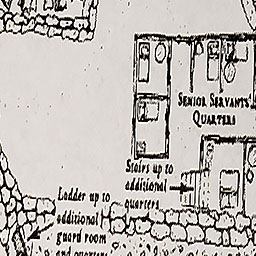 Senior Servants'
Quarters
Stairs up to
additional
quarters
Ladder up to
additional
guard room
and quarters